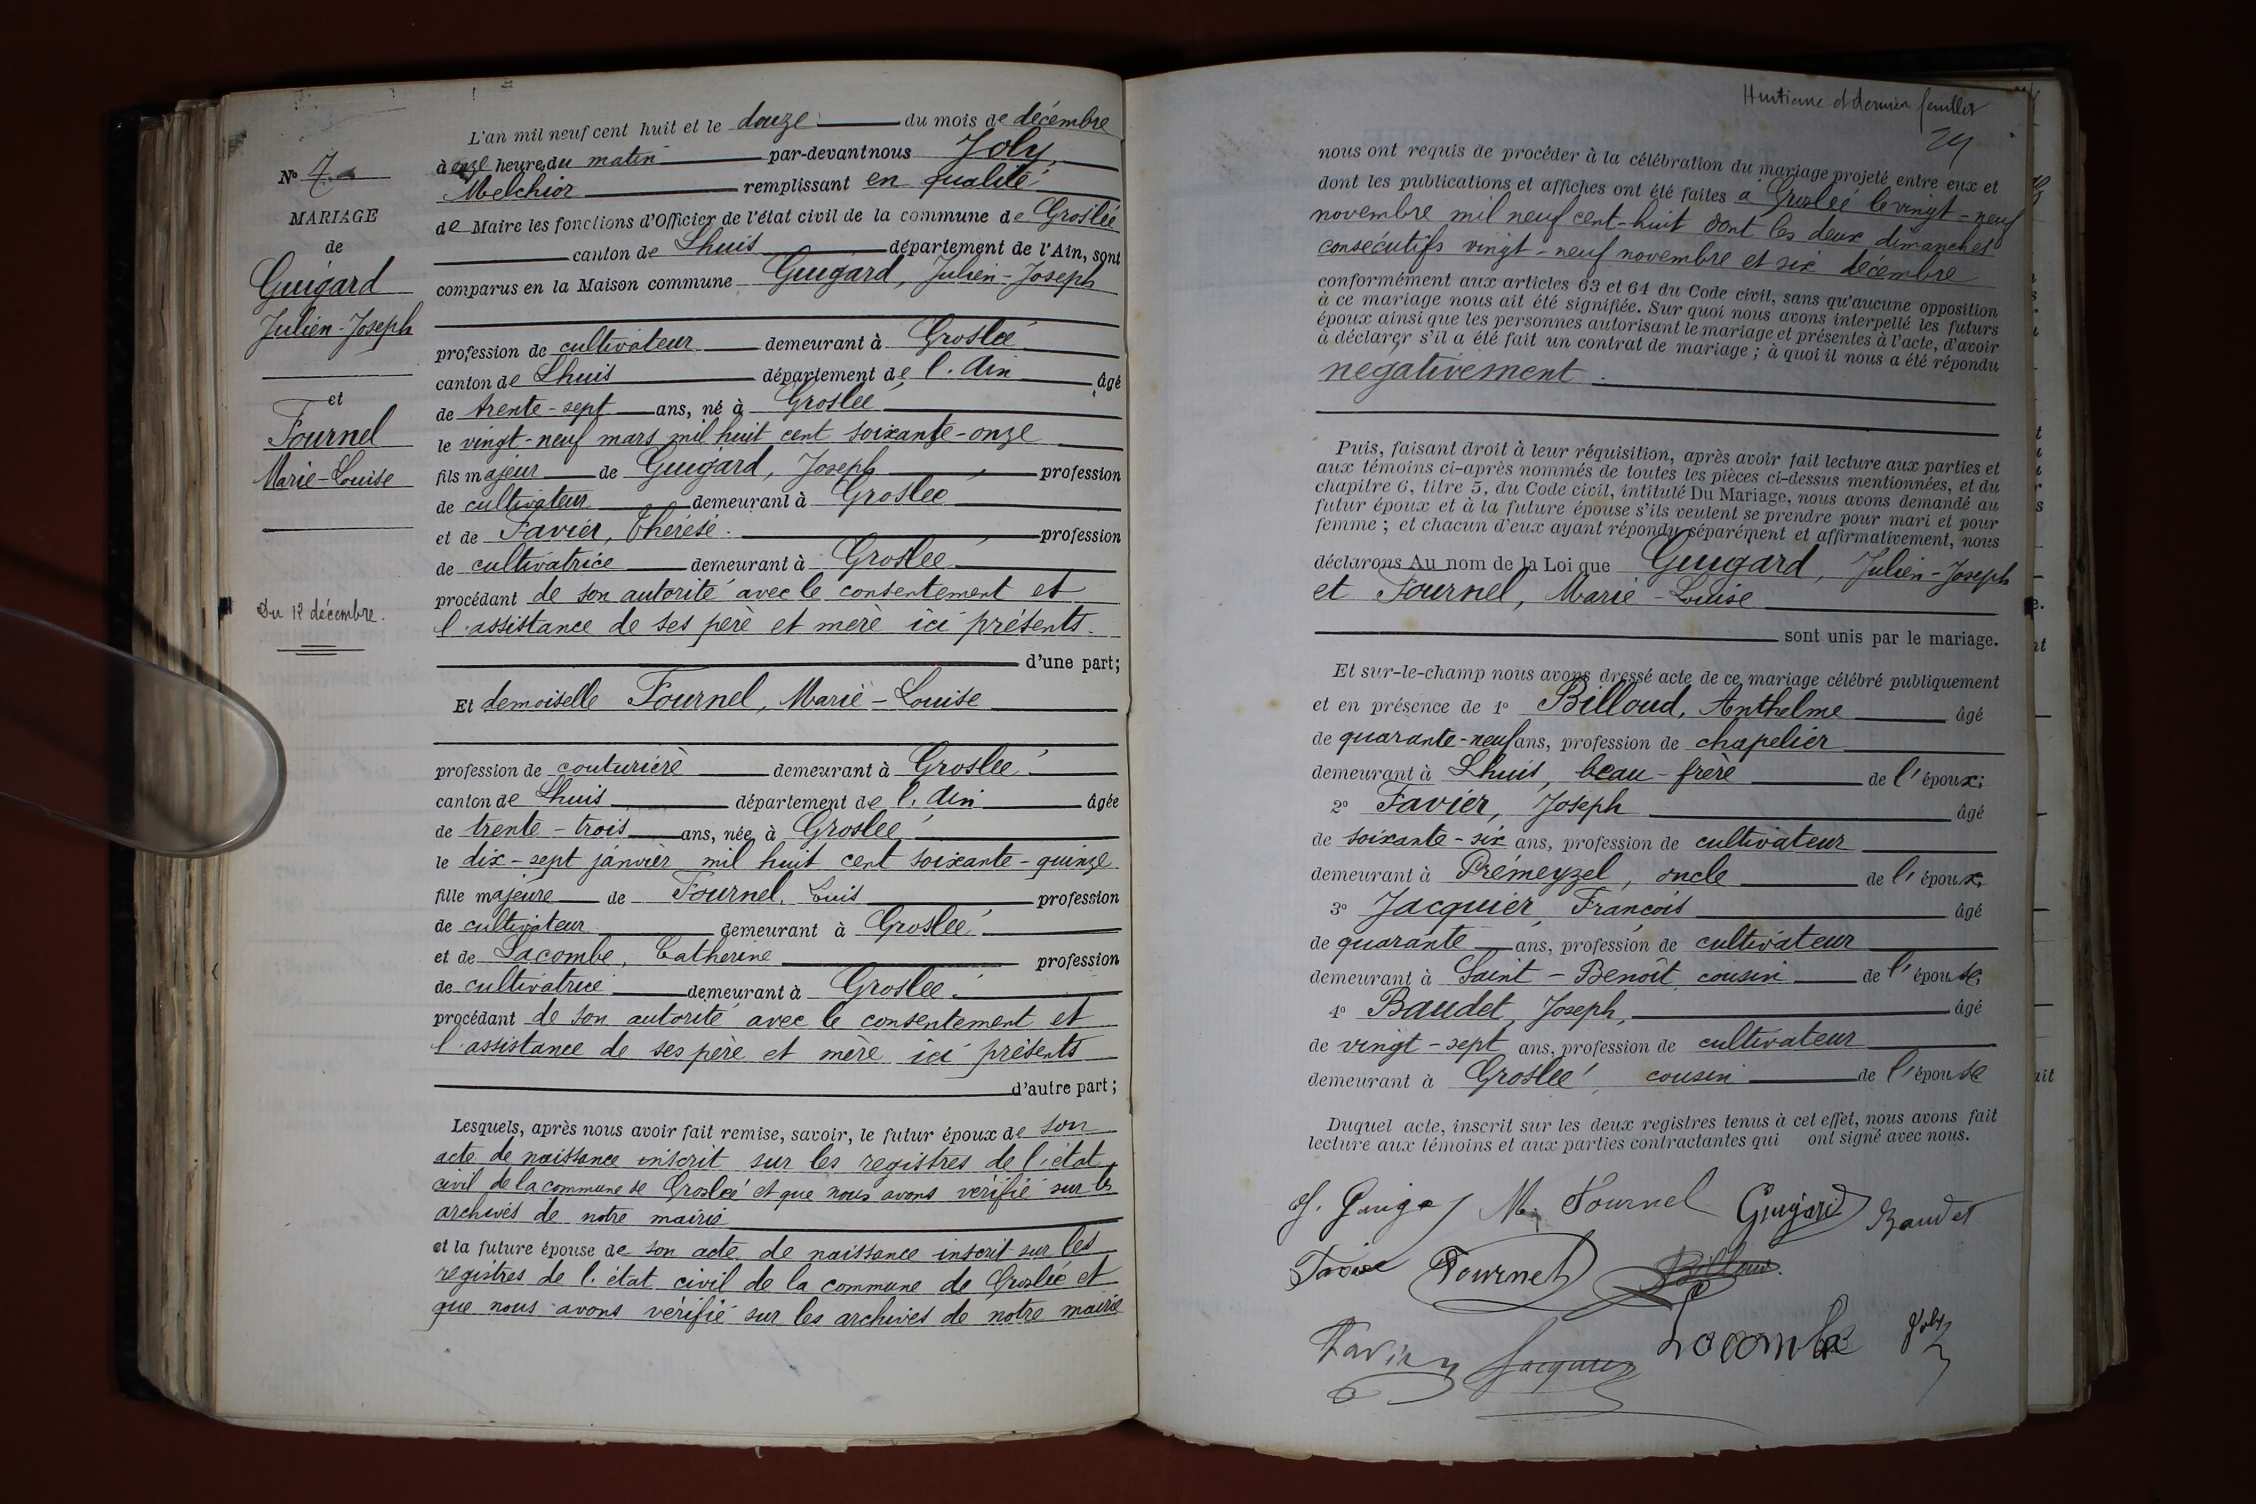 L'an mil neuf cent huit et le douze du mois de décembre
à onze heures du matin par-devant nous Joly,
Melchior remplissant en qualité
de Maire les fonctions d'Officier de l'état civil de la commune de Groslée
canton de Lhuis département de l'Ain, sont
comparus en la Maison commune Guigard, Julien-Joseph
profession de cultivateur demeurant à Groslée
canton de Lhuis département de l'Ain âgé
de trente-sept ans, né à Groslée
le vingt-neuf mars mil huit cent soixante-onze
fils majeur de Guigard, Joseph profession
de cultivateur demeurant à Groslée
et de Favier, Thérèse profession
de cultivatrice demeurant à Groslée
procédant de son autorité avec le consentement et
l'assistance de ses père et mère ici présents.
d'une part;
Et demoiselle Fournel, Marie-Louise
profession de couturière demeurant à Groslée
canton de Lhuis département de l'Ain âgée
de trente-trois ans, née à Groslée
le dix-sept janvier mil huit cent soixante-quinze
fille majeure de Fournel, Luis profession
de cultivateur demeurant à Groslée
et de Lacombe, Catherine profession
de cultivatrice demeurant à Groslée.
procédant de son autorité avec le consentement et
l'assistance de ses père et mère ici présents
d'autre part;
Lesquels, après nous avoir fait remise, savoir, le futur époux de son
acte de naissance inscrit sur les registres de l'état
civil de la commune de Groslée et que nous avons vérifié sur les
archives de notre mairie
et la future épouse de son acte de naissance inscrit sur les
registres de l'état civil de la commune de Groslée et
que nous avons vérifié sur les archives de notre mairie
No 7
MARIAGE
de
Guigard
Julien-Joseph
et
Fournel
Marie-Louise
Du 12 décembre.
Huitième et dernier feuillet
nous ont requis de procéder à la célébration du mariage projeté entre eux et
dont les publications et affiches ont été faites à Groslée le vingt-neuf
novembre mil neuf cent-huit dont les deux dimanches
consécutifs vingt-neuf novembre et six décembre
conformément aux articles 63 et 64 du Code civil, sans qu'aucune opposition
à ce mariage nous ait été signifiée. Sur quoi nous avons interpellé les futurs
époux ainsi que les personnes autorisant le mariage et présentes à l'acte, d'avoir
à déclarer s'il a été fait un contrat de mariage; à quoi il nous a été répondu
négativement.
Puis, faisant droit à leur réquisition, après avoir fait lecture aux parties et
aux témoins ci-après nommés de toutes les pièces ci-dessus mentionnées, et du
chapitre 6, titre 5, du Code civil, intitulé Du Mariage, nous avons demandé au
futur époux et à la future épouse s'ils veulent se prendre pour mari et pour
femme; et chacun d'eux ayant répondu séparément et affirmativement, nous
déclarons Au nom de la Loi que Guigard, Julien-Joseph
et Fournel, Marie-Louise
sont unis par le mariage.
Et sur-le-champ nous avons dressé acte de ce mariage célébré publiquement
et en présence de 1° Billoud, Anthelme âgé
de quarante-neuf ans, profession de chapelier
demeurant à Lhuis, beau-frère de l'époux;
2° Favier, Joseph âgé
de soixante-six ans, profession de cultivateur
demeurant à Prémeyzel, oncle de l'époux;
3° Jacquier, François âgé
de quarante ans, profession de cultivateur
demeurant à Saint-Benoît, cousin de l'épouse;
4° Baudet, Joseph, âgé
de vingt-sept ans, profession de cultivateur
demeurant à Groslée, cousin de l'épouse
Duquel acte, inscrit sur les deux registres tenus à cet effet, nous avons fait
lecture aux témoins et aux parties contractantes qui ont signé avec nous.
Fournel Guigard Baudet
Fournel Billoud
Jacquier Lacombe Joly